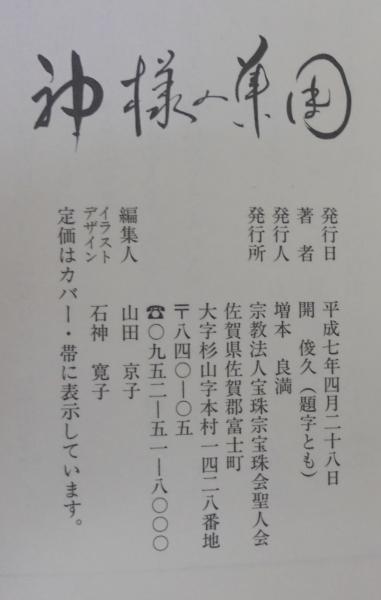 神様の集団
発行日　平成七年四月二十八日
著　者　開　俊久（題字とも）
発行人　増本　良満
発行所　宗教法人宝珠宗宝珠会聖人会
佐賀県佐賀郡富士町
大字杉山字本村一四二八番地
〒八四〇—〇五
☎〇九五二—五一—八〇〇〇
編集人　山田　京子
イラスト
デザイン　石神　寛子
定価はカバー・帯に表示しています。